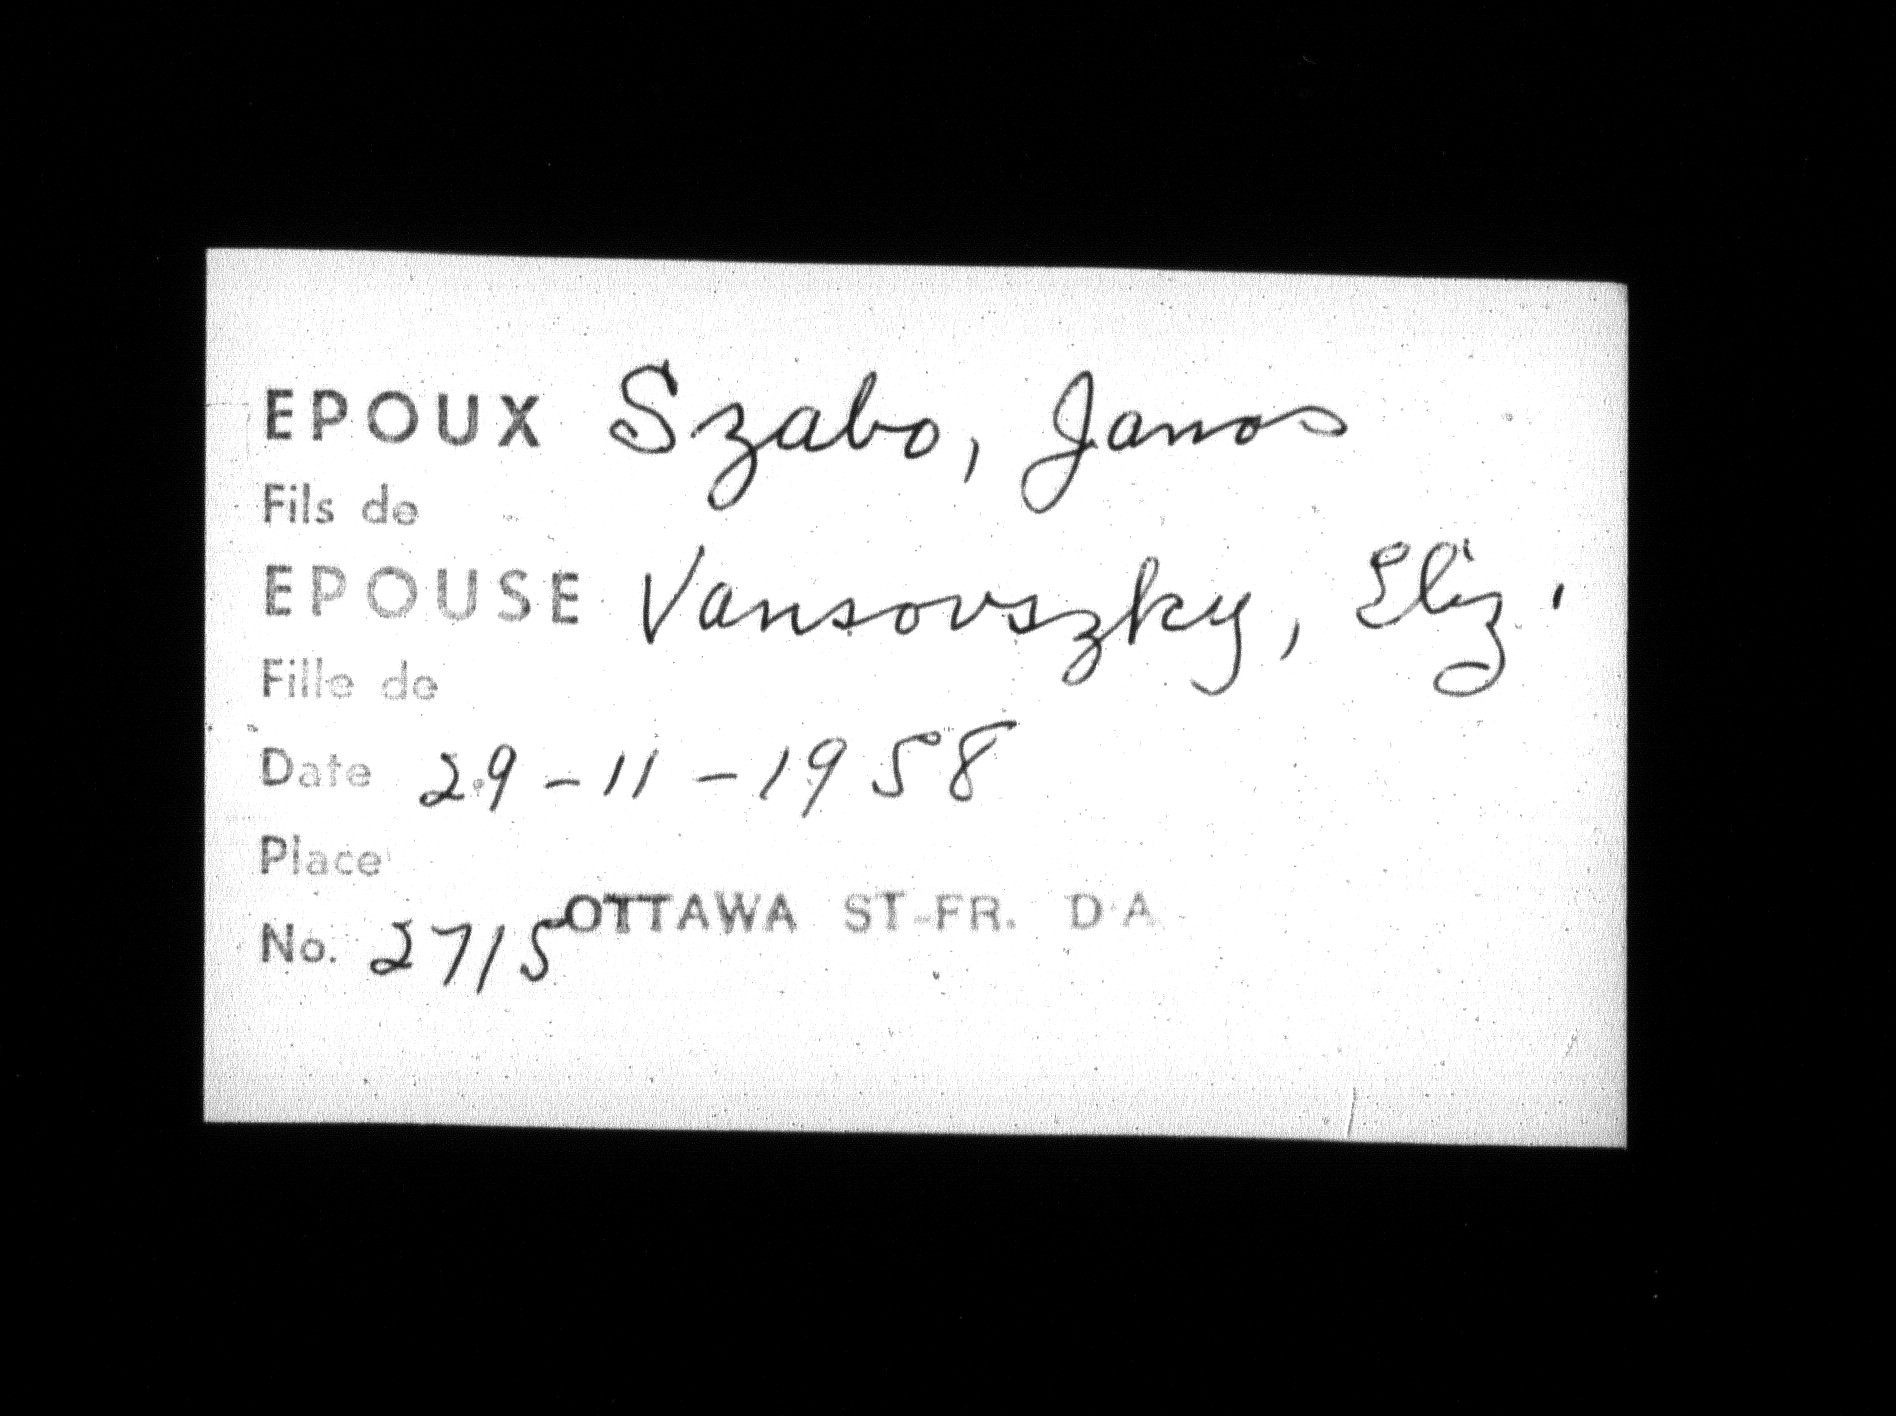 EPOUX Szabo, Janos
Fils de
EPOUSE Vansovszky, Eliz.
Fille de
Date 29-11-1958
Place
OTTAWA ST-FR. D'A.
No. 2715